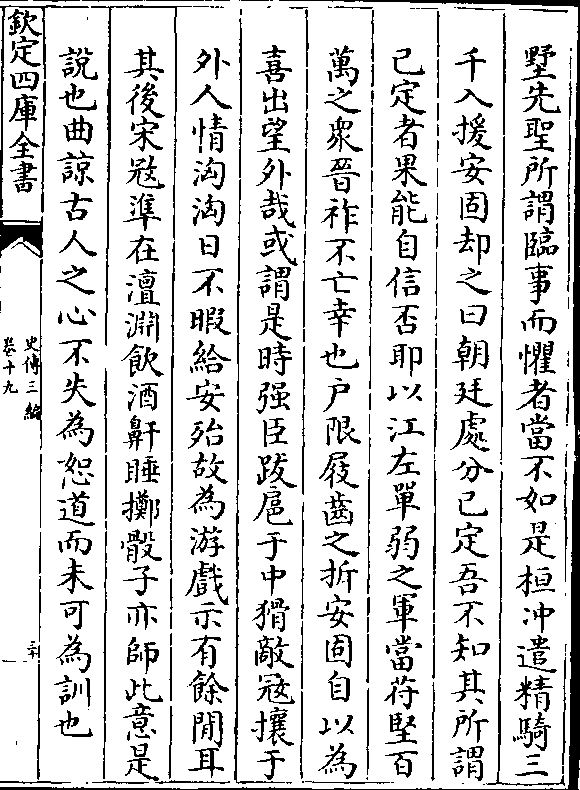 墅先聖所謂臨事而懼者當不如是桓冲遣精騎三
千入援安固却之曰朝廷處分已定吾不知其所謂
已定者果能自信否耶以江左單弱之軍當苻堅百
萬之衆晉祚不亡幸也戶限屐齒之折安固自以為
喜出望外哉或謂是時强臣跋扈于中猾敵冦攘于
外人情洶洶日不暇給安殆故為游戲示有餘閒耳
其後宋冦準在澶淵飲酒鼾睡擲骰子亦師此意是
說也曲諒古人之心不失為恕道而未可為訓也
欽定四庫全書
史傳三編
卷十九
三十